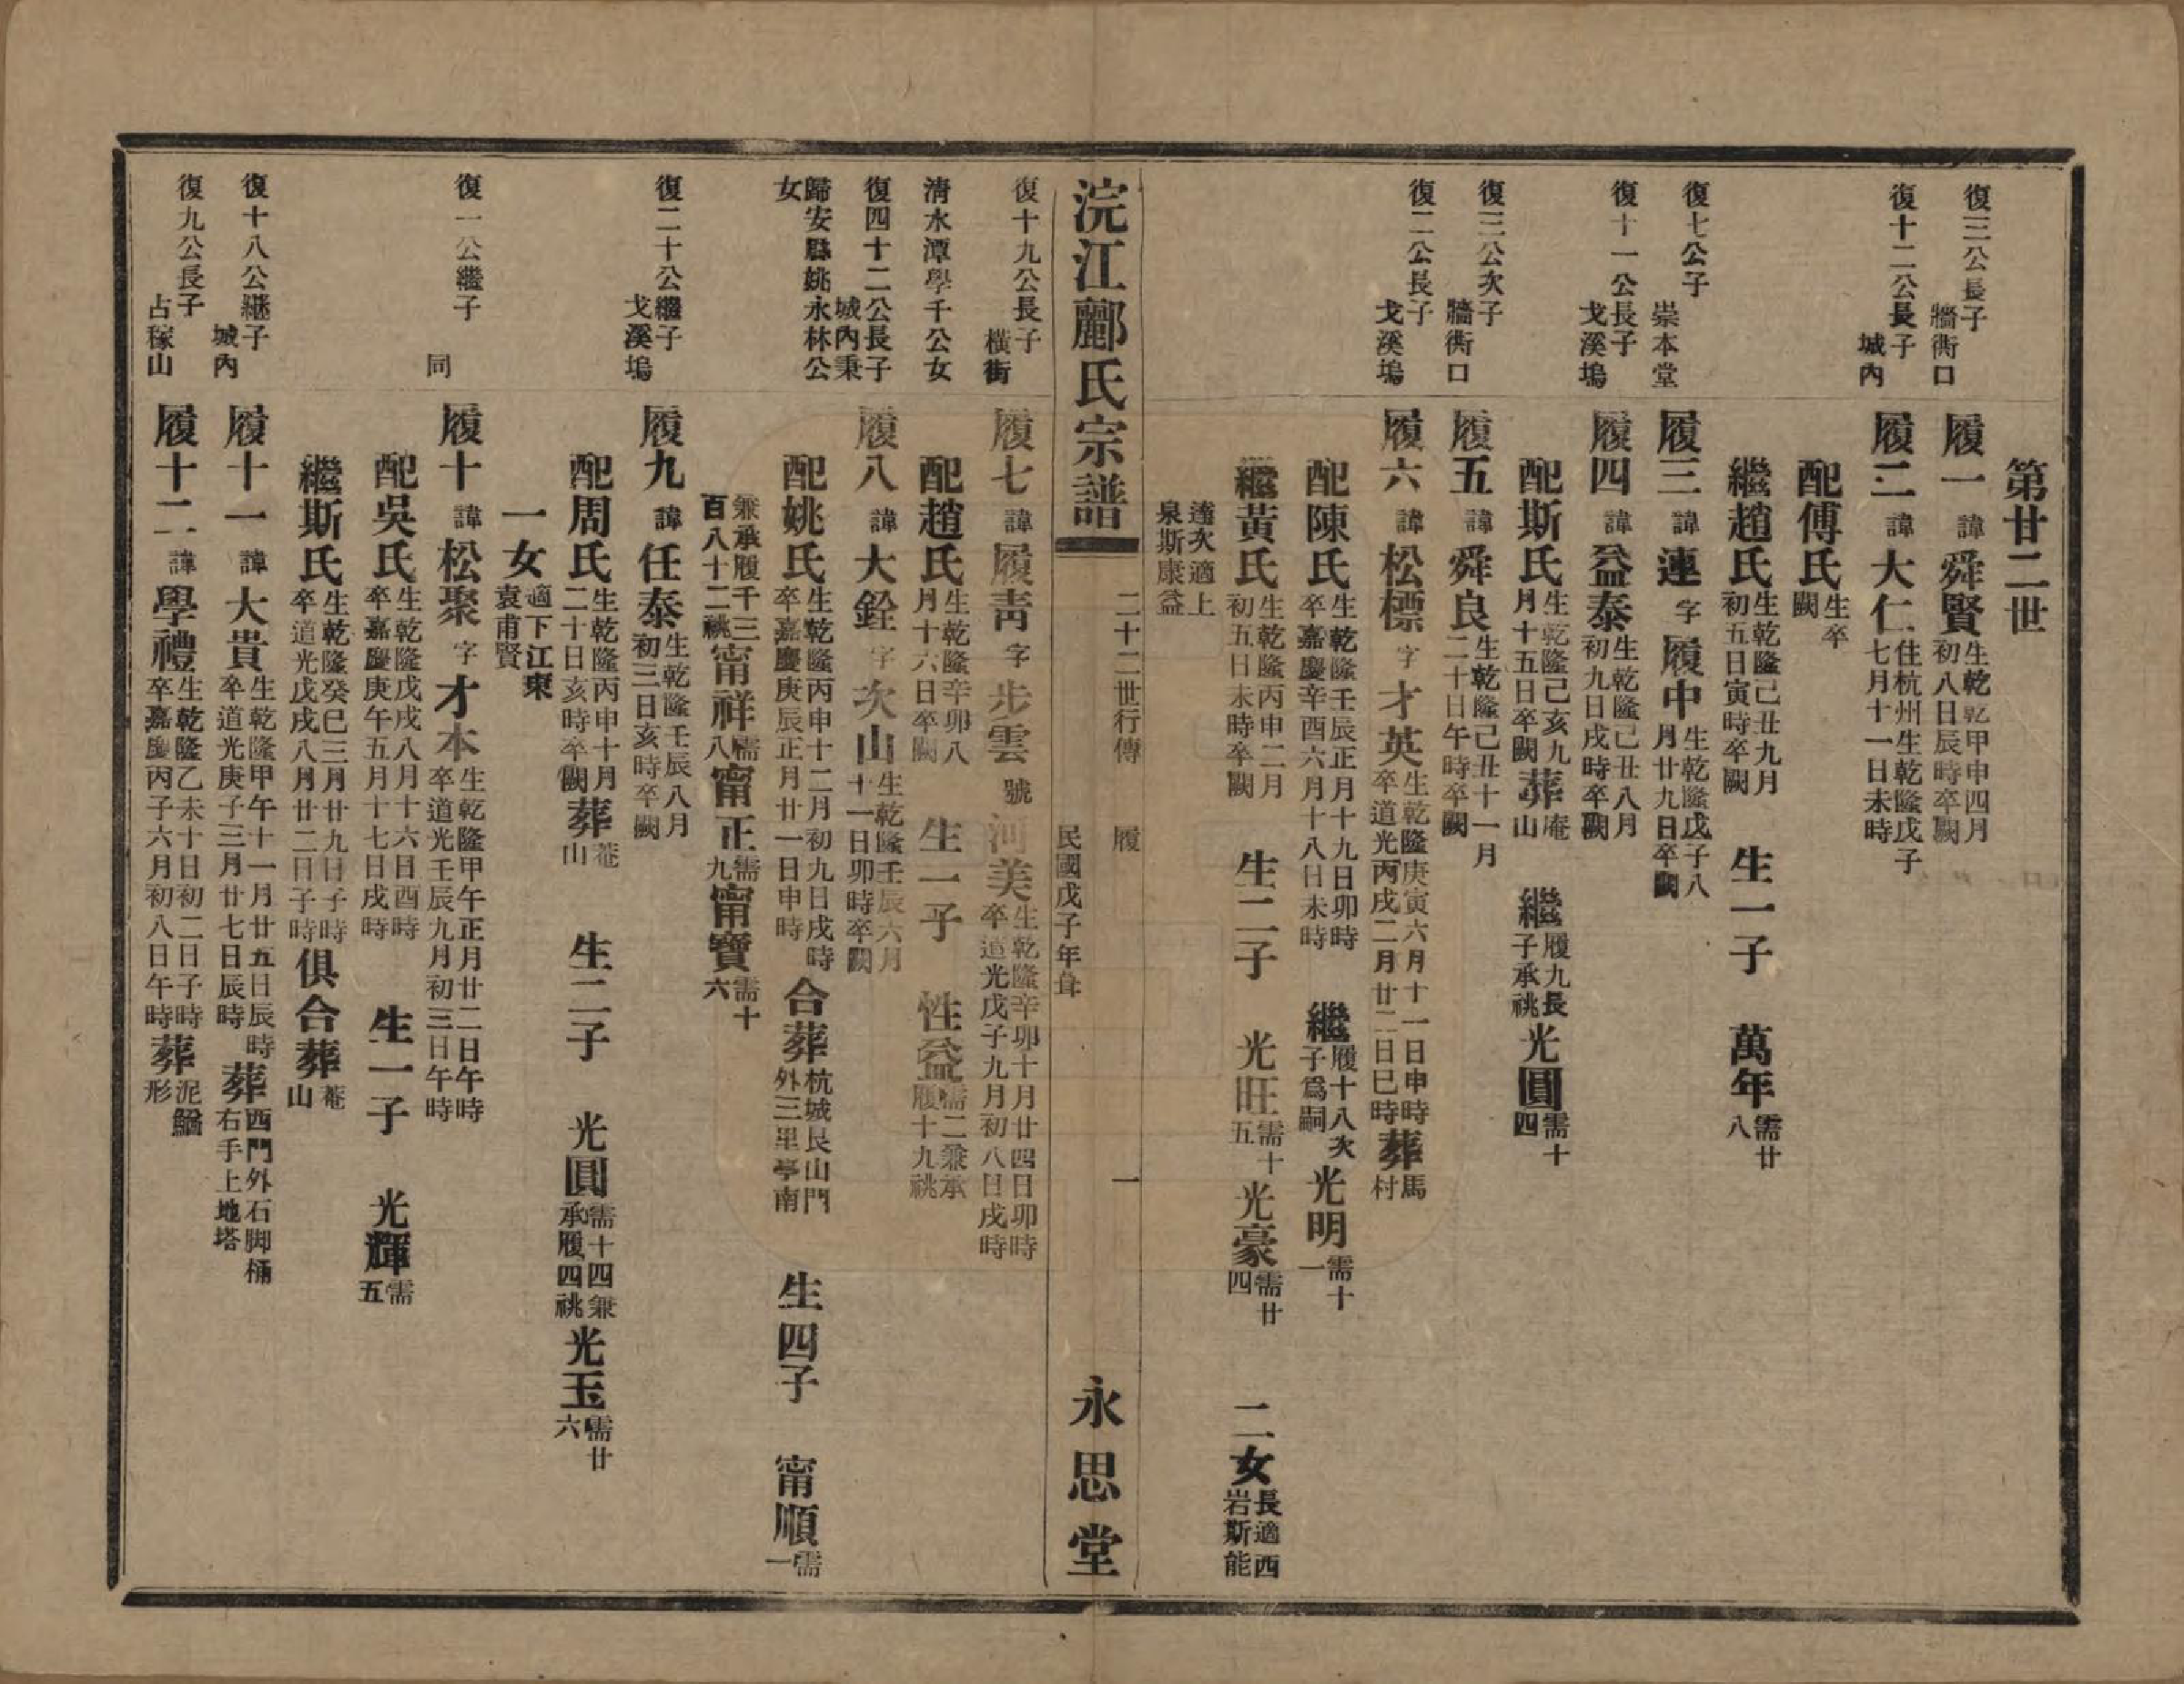 第廿二世
復三公長子 牆衖口
履一 諱 舜賢 生乾乾甲申四月 初八日辰時卒闕
復十二公長子 城內
履二 諱 大仁 住杭州生乾隆戊子 七月十一日未時
配傅氏 生卒 闕
繼趙氏 生乾隆己丑九月 初五日寅時卒闕 生一子 萬年 需廿八
復七公子 崇本堂
履三 諱 連 字 履中 生乾隆戊子八 月廿九日卒闕
復十一公長子 戈溪塢
履四 諱 益泰 生乾隆己丑八月 初九日戌時卒闕
配斯氏 生乾隆己亥九 月十五日卒闕 葬 庵山 繼 履九長 子承祧 光圓 需十四
復三公次子 牆衖口
履五 諱 舜良 生乾隆己丑十一月 二十日午時卒闕
復二公長子 戈溪塢
履六 諱 松標 字 才英 生乾隆庚寅六月十一日申時 卒道光丙戌二月廿二日巳時 葬 馬村
配陳氏 生乾隆壬辰正月十九日卯時 卒嘉慶辛酉六月十八日未時 繼 履十八次 子為嗣 光明 需十一
繼黃氏 生乾隆丙申二月 初五日未時卒闕 生二子 光旺 需十五 光豪 需廿四 二女 長適西 岩斯能
達次適上 泉斯康益
浣江酈氏宗譜 二十二世行傳 履 一 民國戊子年 永思堂
復十九公長子 橫街
履七 諱 履靑 字 步雲 號 河美 生乾隆辛卯十月廿四日卯時 卒道光戊子九月初八日戌時
清水潭學千公女
配趙氏 生乾隆辛卯八 月十六日卒闕 生一子 性益 需二兼承 履十九祧
復四十二公長子 城內秉
履八 諱 大銓 字 次山 生乾隆壬辰六月 十一日卯時卒闕
歸安縣姚永林公女
配姚氏 生乾隆丙申十二月初九日戌時 卒嘉慶庚辰正月廿一日申時 合葬 杭城艮山門 外三里亭南 生四子 甯順 需一
兼承履千三 百八十二祧 甯祥 需八 甯正 需九 甯寶 需十六
復二十公繼子 戈溪塢
履九 諱 任泰 生乾隆壬辰八月 初三日亥時卒闕
配周氏 生乾隆丙申十月 二十日亥時卒闕 葬 菴山 生二子 光圓 需十四兼 承履四祧 光玉 需廿六
一女 適下江東 袁甫賢
復一公繼子 同
履十 諱 松聚 字 才本 生乾隆甲午正月廿二日午時 卒道光壬辰九月初三日午時
配吳氏 生乾隆戊戌八月十六日酉時 卒嘉慶庚午五月十七日戌時 生一子 光輝 需五
繼斯氏 生乾隆癸巳三月廿九日子時 卒道光戊戌八月廿二日子時 俱合葬 菴山
復十八公繼子 城內
履十一 諱 大貴 生乾隆甲午十一月廿五日辰時 卒道光庚子三月廿七日辰時 葬 西門外石脚桶 右手上地塔
復九公長子 占稼山
履十二 諱 學禮 生乾隆乙未十日初二日子時 卒嘉慶丙子六月初八日午時 葬 泥鰌形